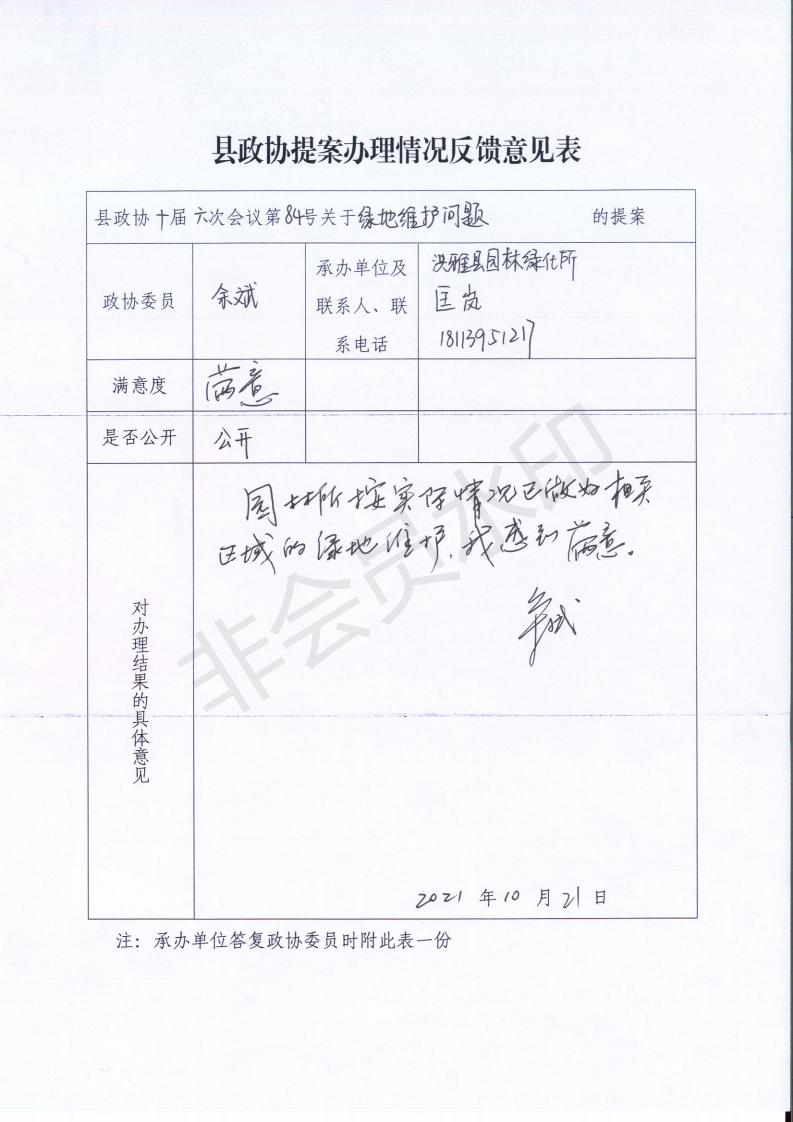 县政协提案办理情况反馈意见表
县政协十届六次会议第84号关于绿地维护问题 的提案
政协委员 余斌 承办单位及联系人、联系电话 洪雅县园林绿化所
匡岚
18113951217
满意度 满意
是否公开 公开
对办理结果的具体意见
园林所按实际情况已做好相关
区域的绿地维护,我感到满意。
余斌
2021 年 10 月 21 日
注：承办单位答复政协委员时附此表一份
非会员水印